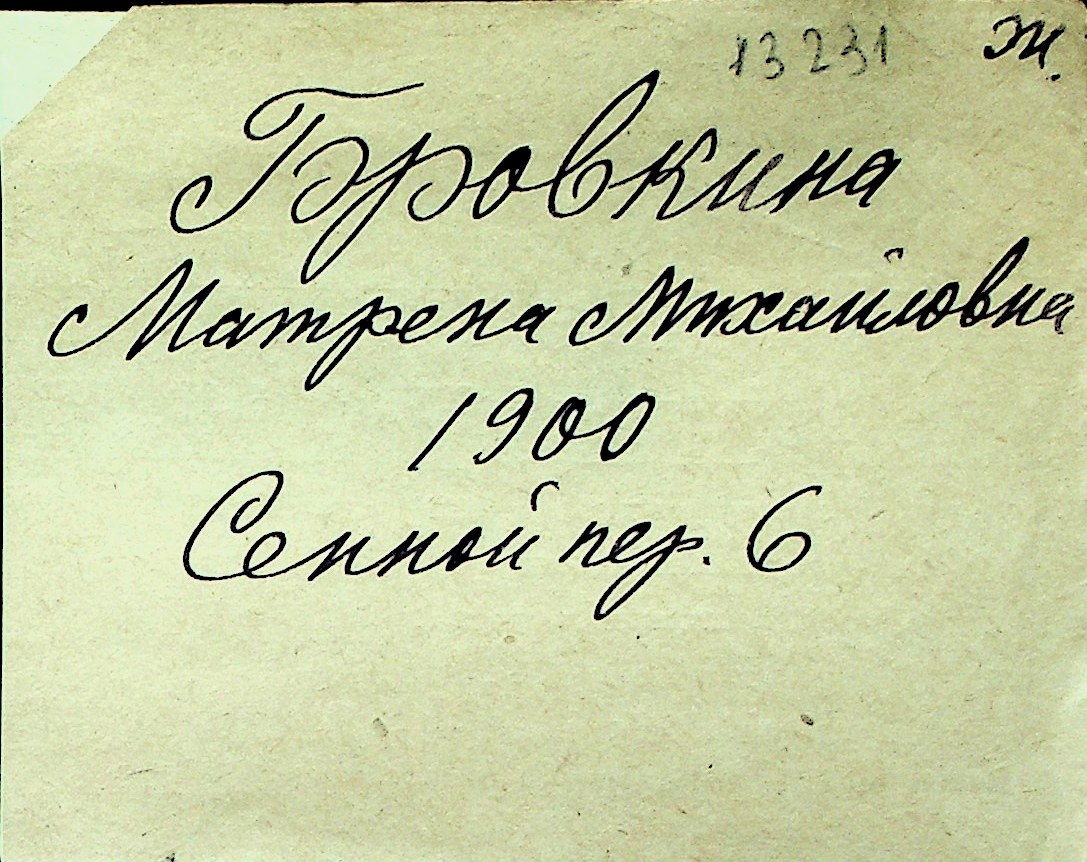 13231 Ж.
Бровкина
Матрена Михайловна
1900
Сенной пер. 6